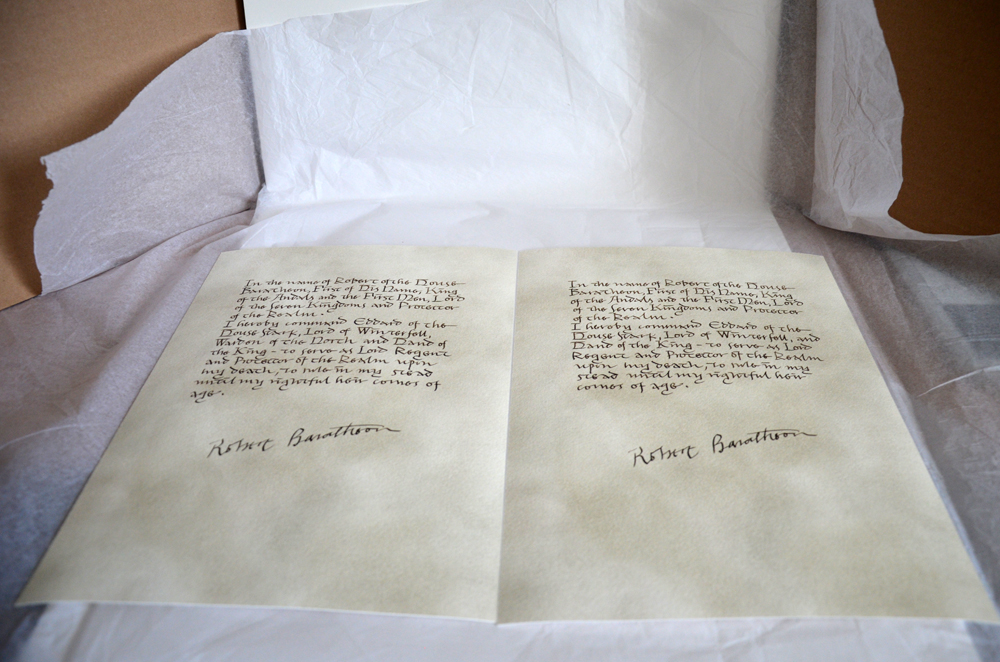 In the name of Robert of the House
Baratheon, First of His Name, King
of the Andals and the First Men, Lord
of the Seven Kingdoms and Protector
of the Realm.
I hereby command Eddard of the
House Stark, Lord of Winterfell,
Warden of the North and Hand of
the King - to serve as Lord Regent
and Protector of the Realm upon
my death, to rule in my stead
until my rightful heir comes of
age.
Robert Baratheon
In the name of Robert of the House
Baratheon, First of His Name, King
of the Andals and the First Men, Lord
of the Seven Kingdoms and Protector
of the Realm.
I hereby command Eddard of the
House Stark, Lord of Winterfell, and
Hand of the King - to serve as Lord
Regent and Protector of the Realm
upon my death, to rule in my
stead until my rightful heir
comes of age.
Robert Baratheon